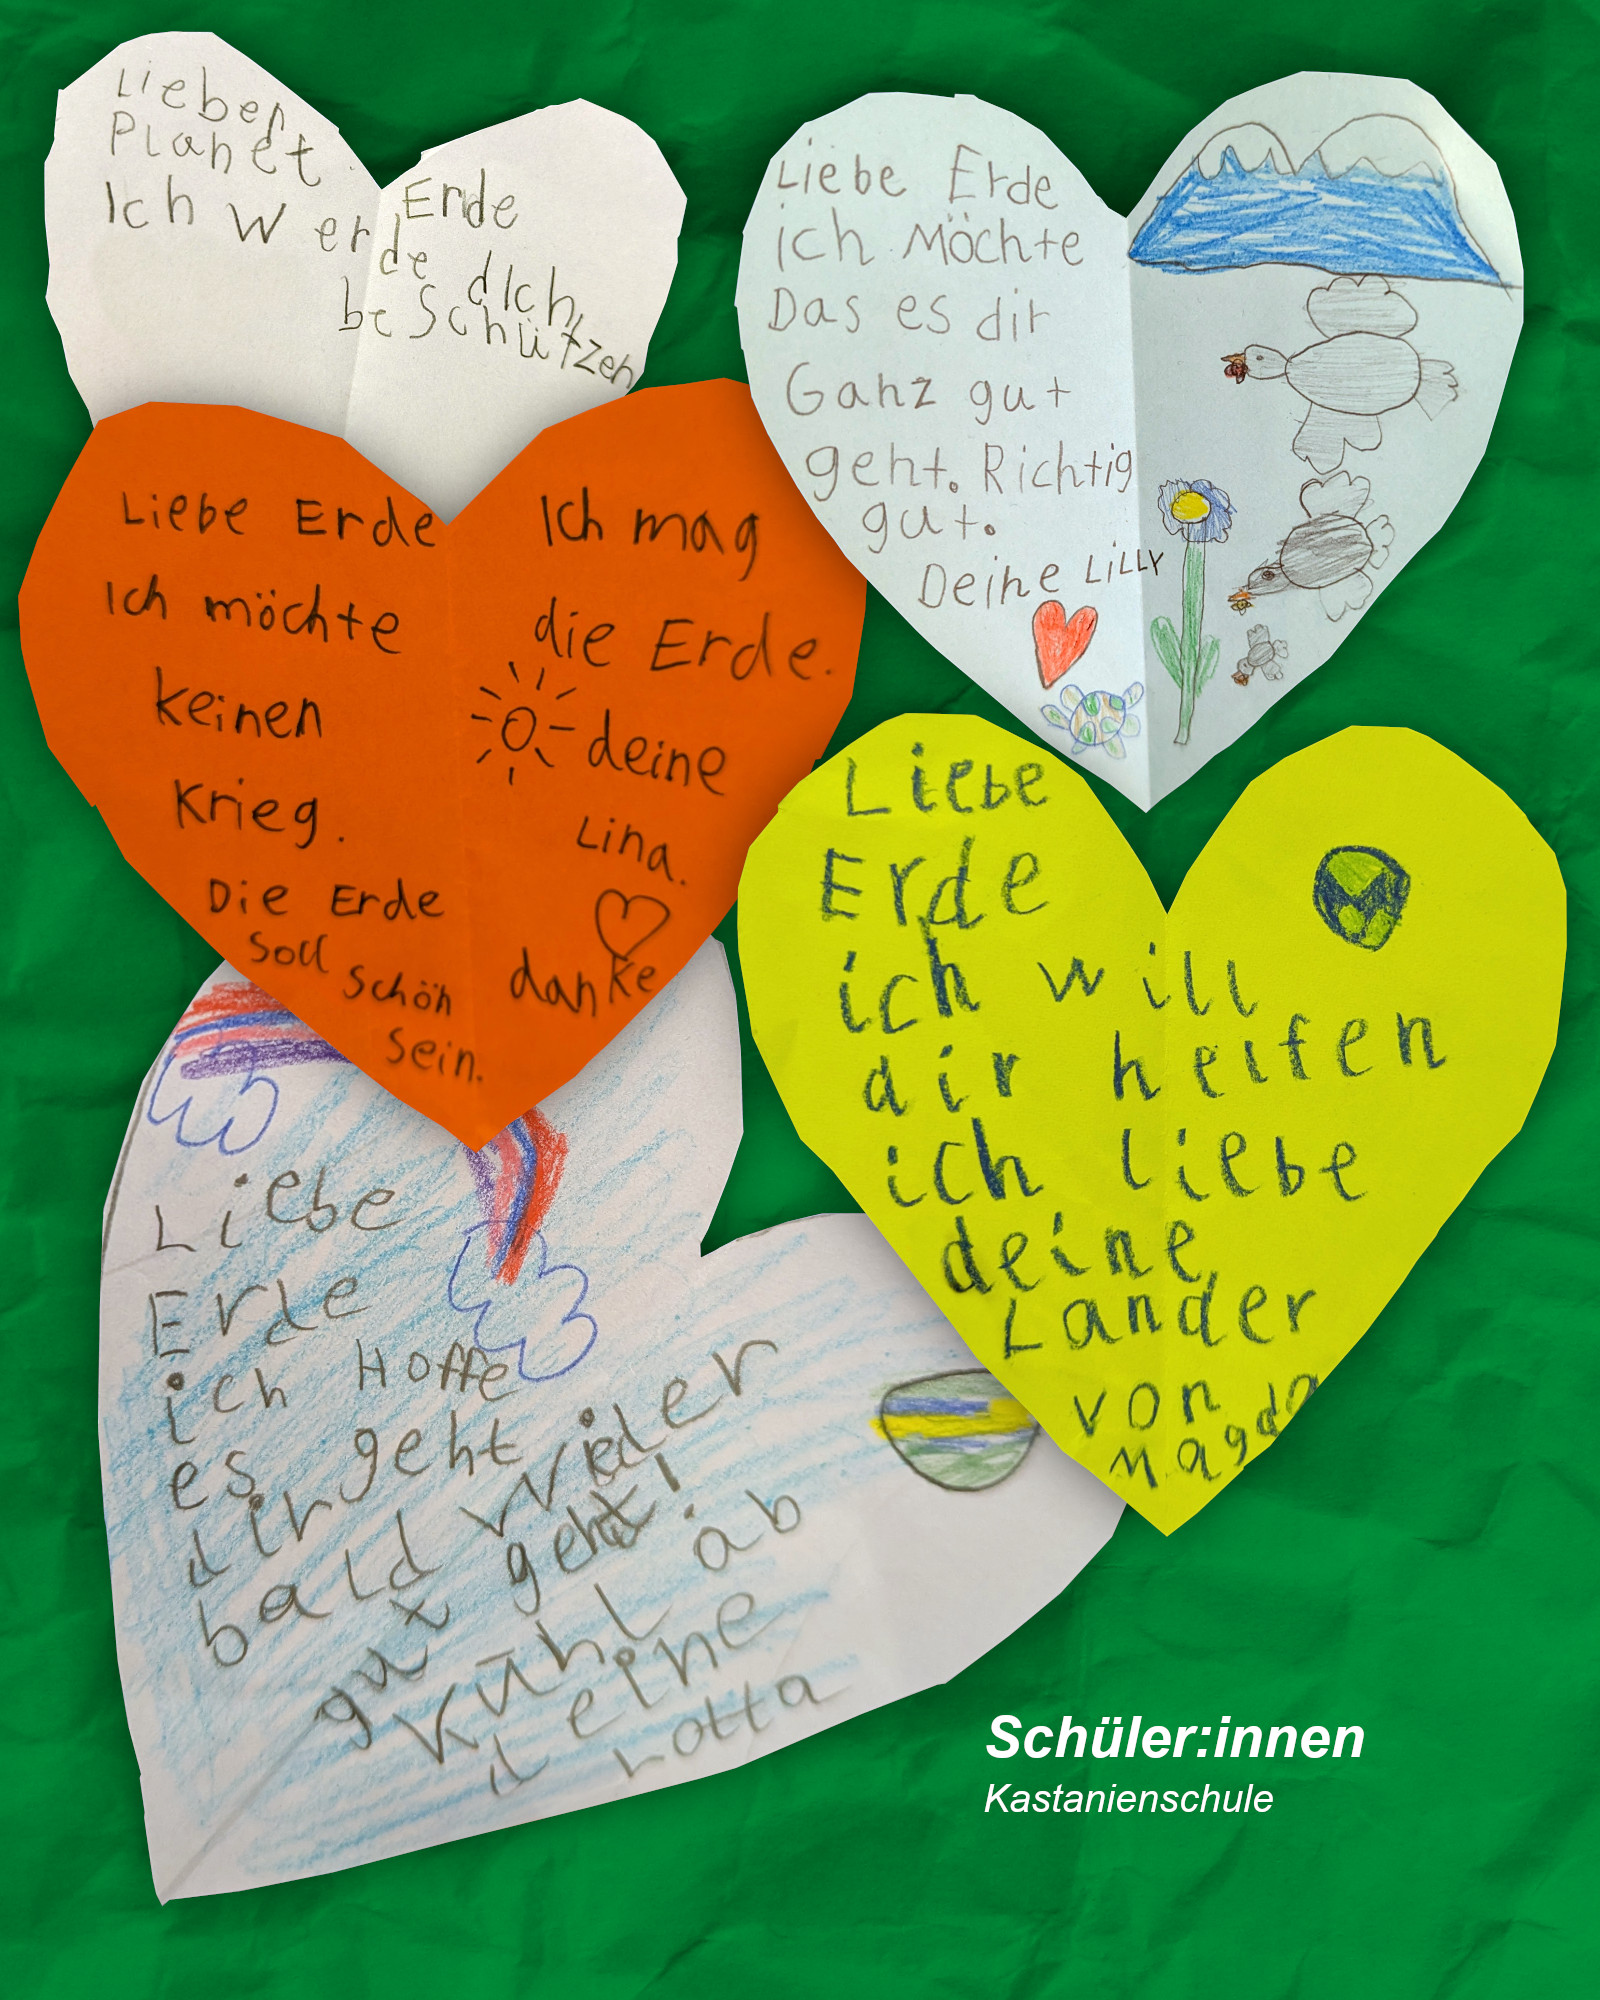 Lieber
Planet Erde
Ich Werde dIch
beSchützen
Liebe Erde
ich Möchte
Das es dir
Ganz gut
geht. Richtig
gut.
Deine LiLLY
Liebe Erde
Ich möchte
keinen
Krieg.
Die Erde
Soll schön
sein.
Ich mag
die Erde.
deine
Lina.
danke
Liebe
Erde
ich will
dir helfen
ich liebe
deine
Länder
von
Magda
Liebe
Erde
ich Hoffe
es geht
dir
bald wieder
gut geht!
Kühl ab
deine
Lotta
Schüler:innen
Kastanienschule